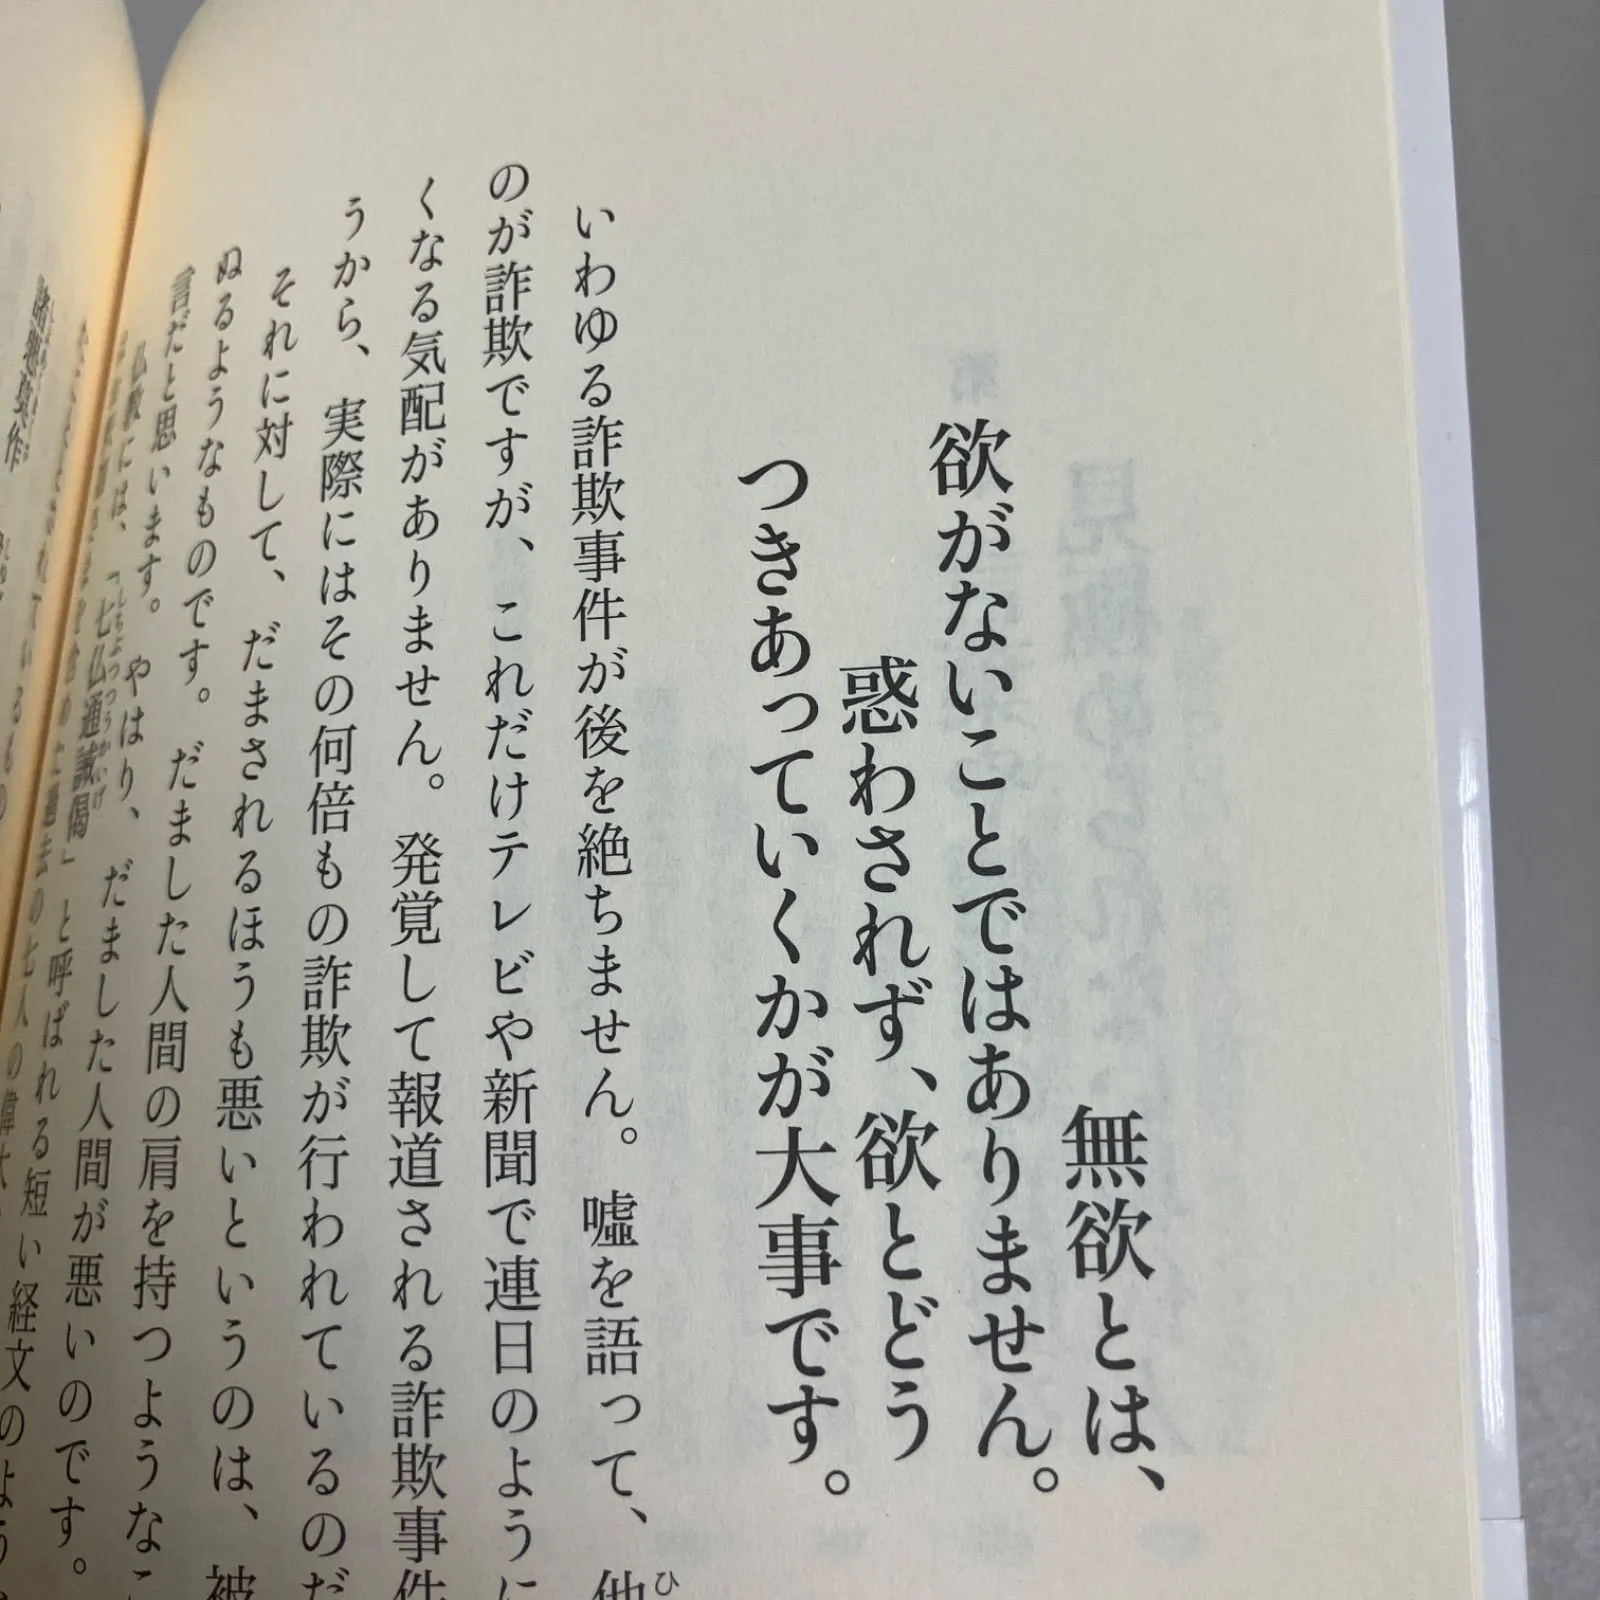 無欲とは、
欲がないことではありません。
惑わされず、欲とどう
つきあっていくかが大事です。
いわゆる詐欺事件が後を絶ちません。嘘を語って、他
ひ
のが詐欺ですが、これだけテレビや新聞で連日のように
くなる気配がありません。発覚して報道される詐欺事件
うから、実際にはその何倍もの詐欺が行われているのだ
それに対して、だまされるほうも悪いというのは、被
ぬるようなものです。だました人間の肩を持つようなこ
言だと思います。やはり、だました人間が悪いのです。
仏教には、「七仏通誡偈」と呼ばれる短い経文のよう
しちぶつつうかいげ
過去の七人の偉大